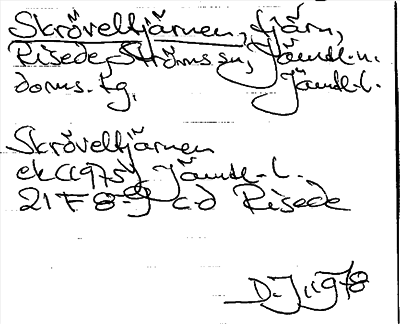 Skröveltjärnen, tjärn,
Risede, Ströms sn, Jämtl.n.
doms.tg, Jämtl.l.
Skröveltjärnen
ek(1975) Jämtl.l.
21 F 8-9 c-d Risede
D-J 1978